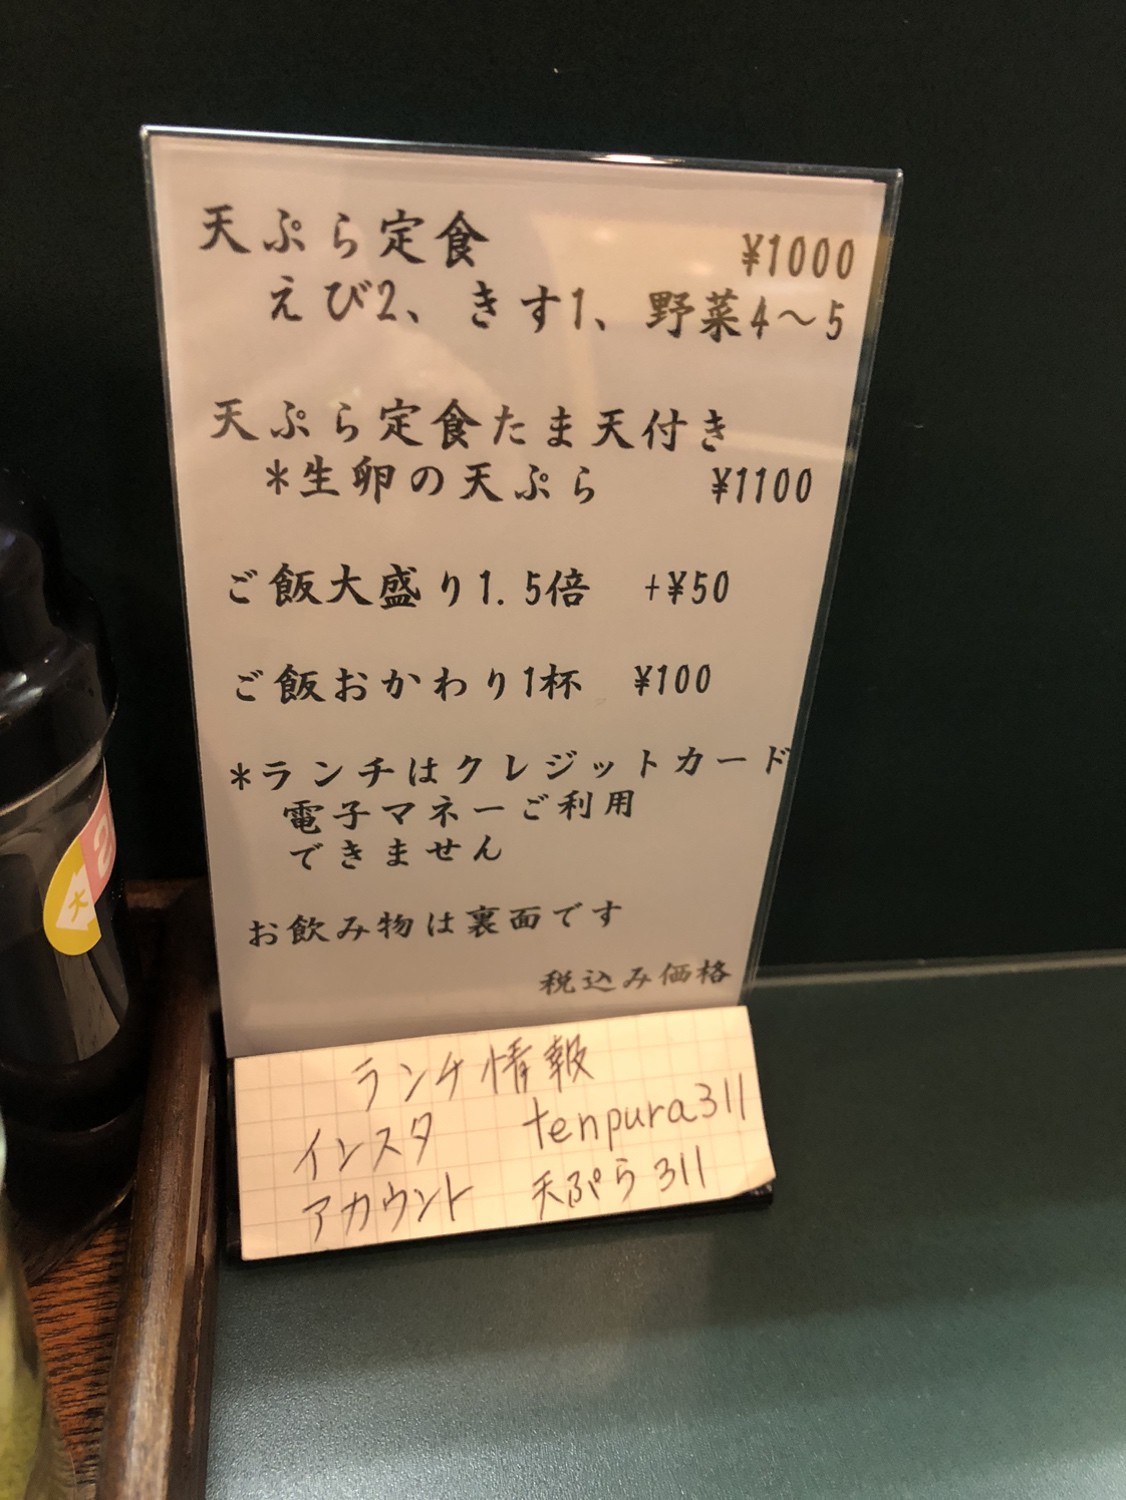 天ぷら定食 ¥1000
えび2、きす1、野菜4～5
天ぷら定食たま天付き
*生卵の天ぷら ¥1100
ご飯大盛り1.5倍 +¥50
ご飯おかわり1杯 ¥100
*ランチはクレジットカード
電子マネーご利用
できません
お飲み物は裏面です
税込み価格
ランチ情報
インスタ tenpura311
アカウント 天ぷら311